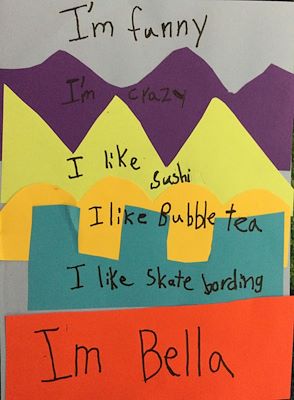 I'm funny
I'm crazy
I like sushi
I like Bubble tea
I like skate bording
Im Bella